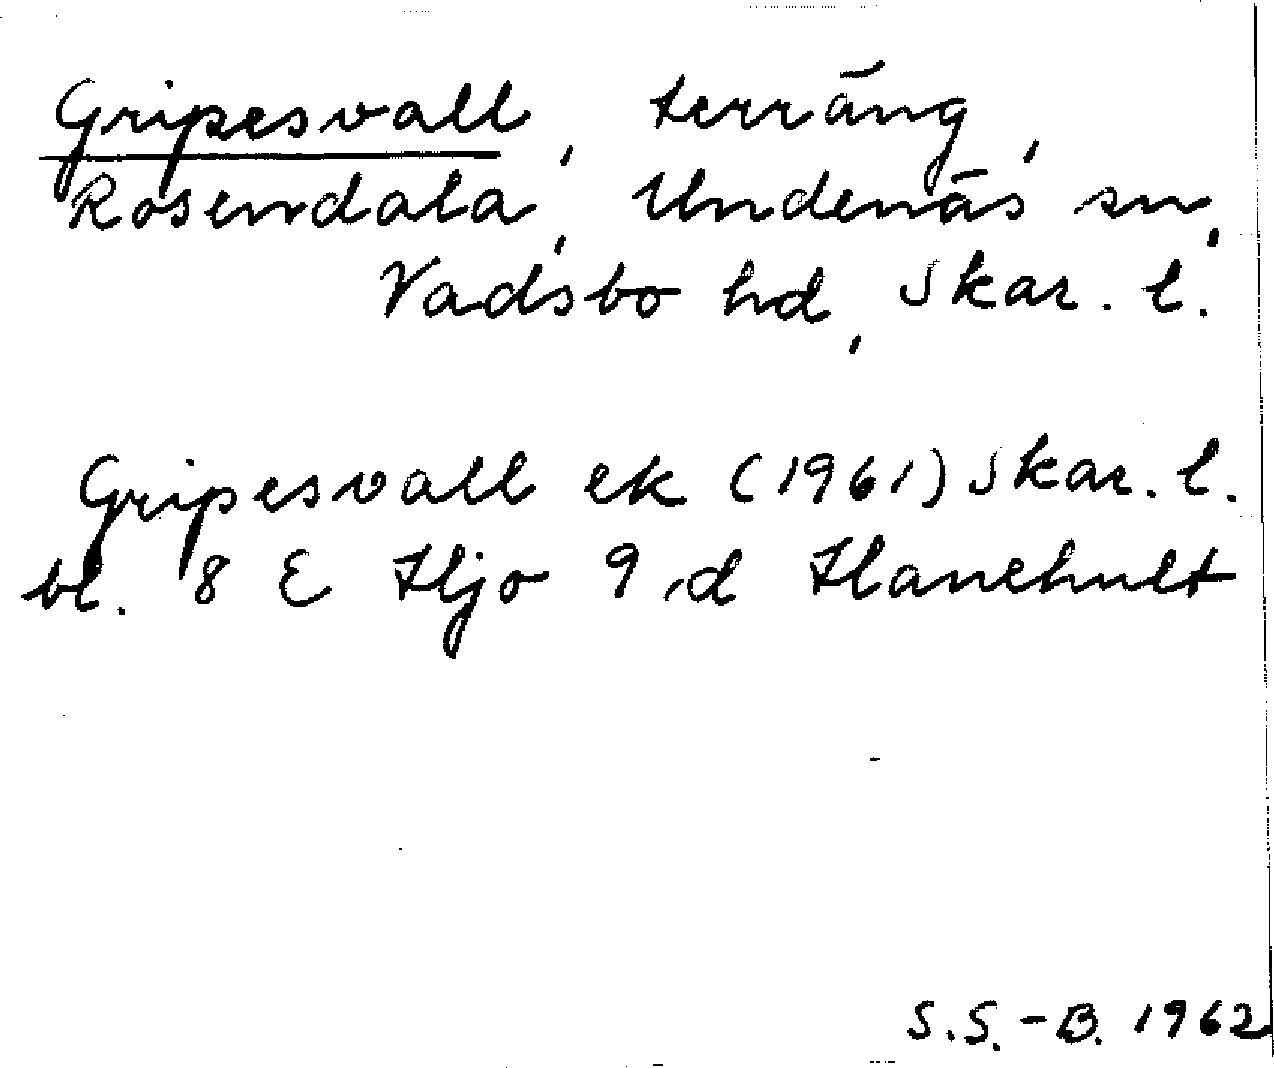 Gripesvall, terräng,
Rosendala, Undenäs sn,
Vadsbo hd, Skar. l.
Gripesvall ek (1961) Skar. l.
bl. 8 E Hjo 9 d Hanehult
S.S.-B. 1962